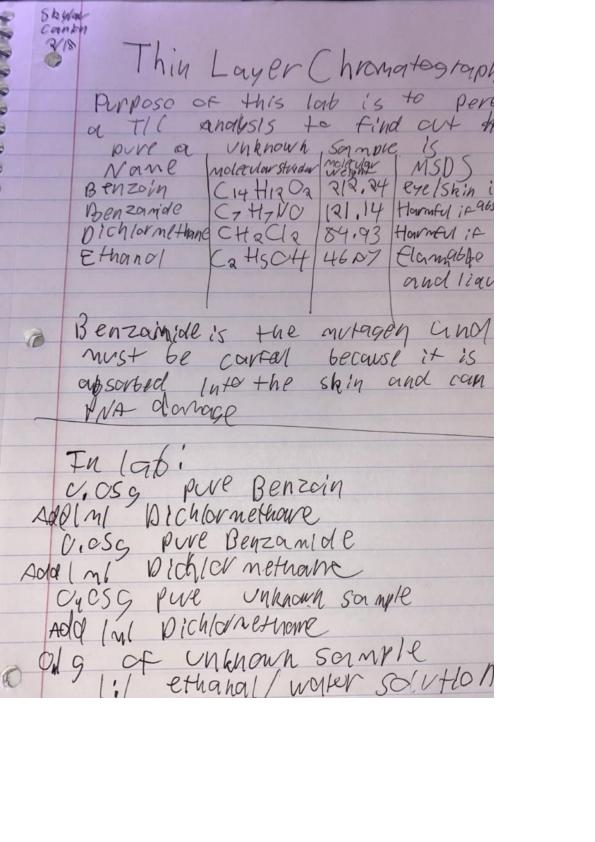 2/18
Thin Layer Chromatograph
Purpose of this lab is to per
a TLC analysis to find out th
pure a unknown sample is
Name molecular weight MSDS
Benzoin C14 H12 O2 212.24 eye/skin i
Benzamide C7 H7 NO 121.14 Harmful if abs
Dichlormethane CH2Cl2 84.93 Harmful if
Ethanol C2 H5OH 46.07 flamable
and liqu
Benzamide is the mutagen and
must be carfal because it is
absorbed into the skin and can
DNA damage
In lab:
0.05g pure Benzoin
Add 1 ml Dichlormethane
0.05g pure Benzamide
Add 1 ml Dichlormethane
0.05g pure unknown sample
Add 1ml Dichlormethane
0.1g of unknown sample
1:1 ethanal/water solution